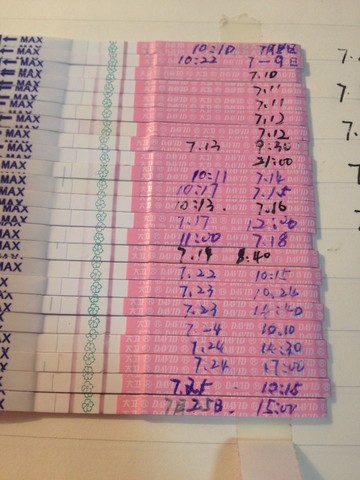 MAX 10:10 7月8日
MAX 10:22 7-9日
7.10
MAX 7.11
MAX 7.11
MAX 7.12
MAX 7.12
MAX 7.13 9:30
MAX 21:00
MAX 10:11 7.14
MAX 10:17 7.15
MAX 10:13. 7.16
MAX 7.17 12:00
MAX 11:00 7.18
MAX 7.19 8.40
MAX 7.22 10:15
MAX 7.23 10.24
MAX 7.23
MAX 7.24 10.10
MAX 7.24 14:30
MAX 7.24 17:00
MAX 7.25 - 10:15
7月25日. 15:00